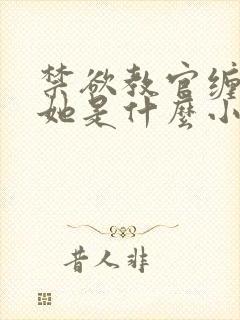 禁欲教官缠
她是什麼小
昔人非